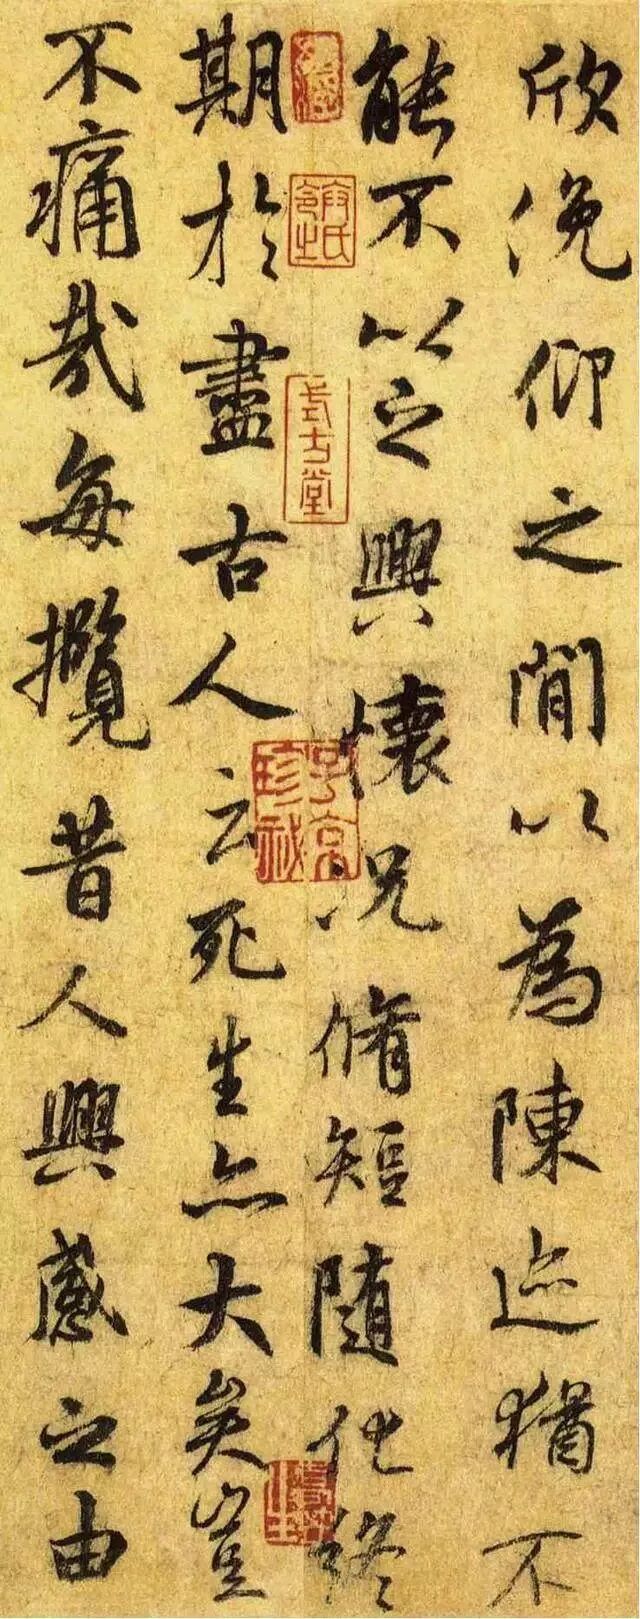 欣俛仰之間以為陳迹猶不
能不以之興懷況脩短隨化終
期於盡古人云死生亦大矣豈
不痛哉每攬昔人興感之由
式古堂
子京珍秘